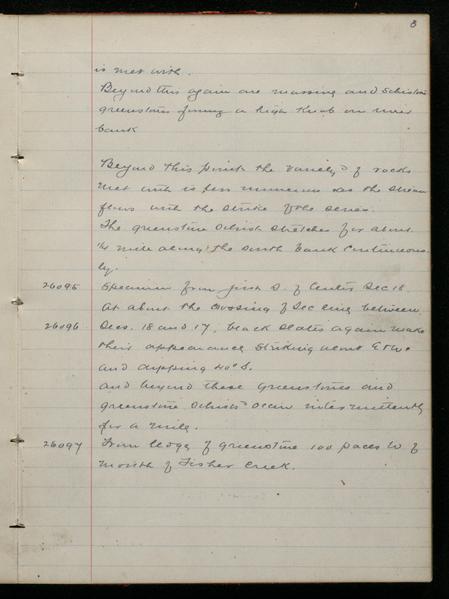 3
is met with.
Beyond this again are massive and schistose
greenstone forming a high knob on river
bank
Beyond this point the variety of rocks
met with is less numerous as the stream
flows with the strike of the series.
The greenstone schist stretches for about
¼ mile along the south bank continuous-
ly.
26095 Specimen from just S. of Center Sec 18.
At about the crossing of Sec line between
26096 Secs. 18 and 17, black slates again make
their appearance striking about E & W
and dipping 40° S.
and beyond these greenstones and
greenstone schists occur intermittently
for a mile.
26097 From ledge of greenstone 100 paces W of
mouth of Fisher Creek.